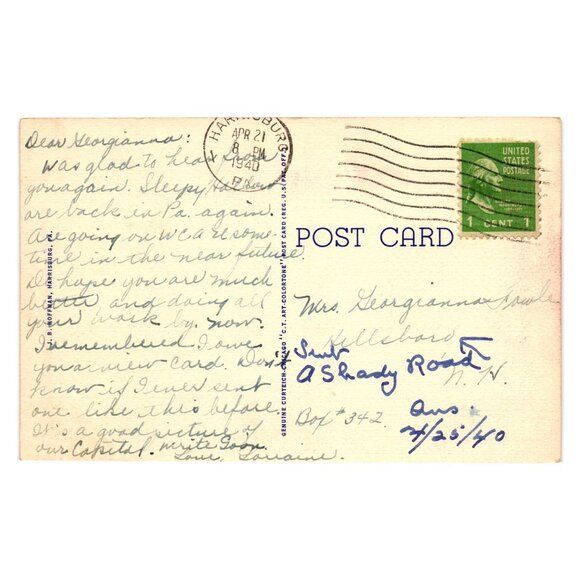 Dear Georgianna:
Was glad to hear from
you again. Sleepy
are back in Pa. again.
Are going on WCAE some-
time in the near future.
Do hope you are much
better and doing all
your work by now.
I remembered I owe
you a view card. Don't
know if I ever sent
one like this before.
It's a good picture of
our Capitol. Write Soon
Love, Lorraine.
HARRISBURG
APR 21
8 PM
1940
PA.
UNITED
STATES
POSTAGE
1 CENT 1
POST CARD
J. B. HOFFMAN, HARRISBURG, PA.
GENUINE CURTEICH-CHICAGO "C.T. ART-COLORTONE" POST CARD (REG. U.S. PAT. OFF.)
Mrs. Georgianna
Hillsboro
N. H.
Box #342
Sent
A Shady Road
Ans.
4/25/40